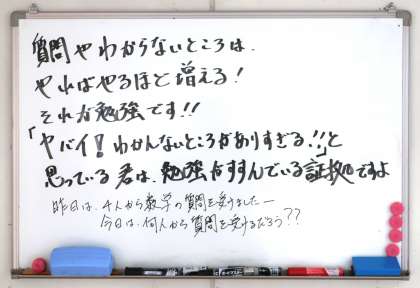 質問やわからないところは、
やればやるほど増える！
それが勉強です!!
「ヤバイ！わかんないところがありすぎる!!」と
思っている君は、勉強がすすんでいる証拠ですよ
昨日は、4人から数学の質問を受けましたー
今日は、何人から質問を受けるだろう??